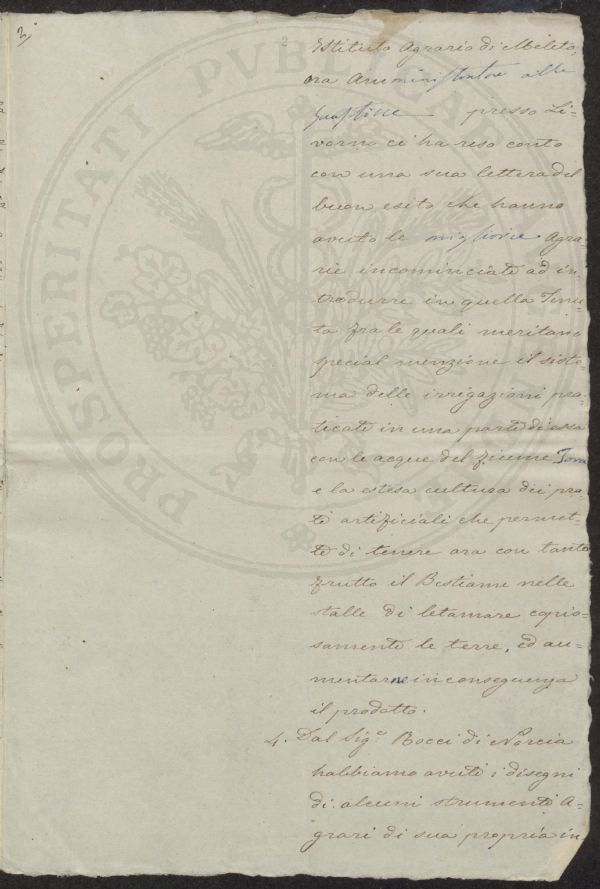 2)
Istituto Agrario di Meleto,
ora Amministratore alle
Guasticce presso Li-
vorno ci ha reso conto
con una sua lettera del
buon esito che hanno
avuto le migliorie Agra
rie incominciate ad in
trodurre in quella Tenu
ta fra le quali meritano
special menzione il siste-
ma delle irrigazioni pra-
ticate in una parte di essa
con le acque del fiume Tora
e la estesa cultura dei pra
ti artificiali che permet-
te di tenere ora con tanto
frutto il Bestiame nelle
stalle di letamare copio-
samente le terre, ed au-
mentarne in conseguenza
il prodotto.
4. Dal Sigr Bocci di Norcia
habbiamo avuti i disegni
di alcuni strumenti A-
grari di sua propria in
PROSPERITATI PVBLICAE